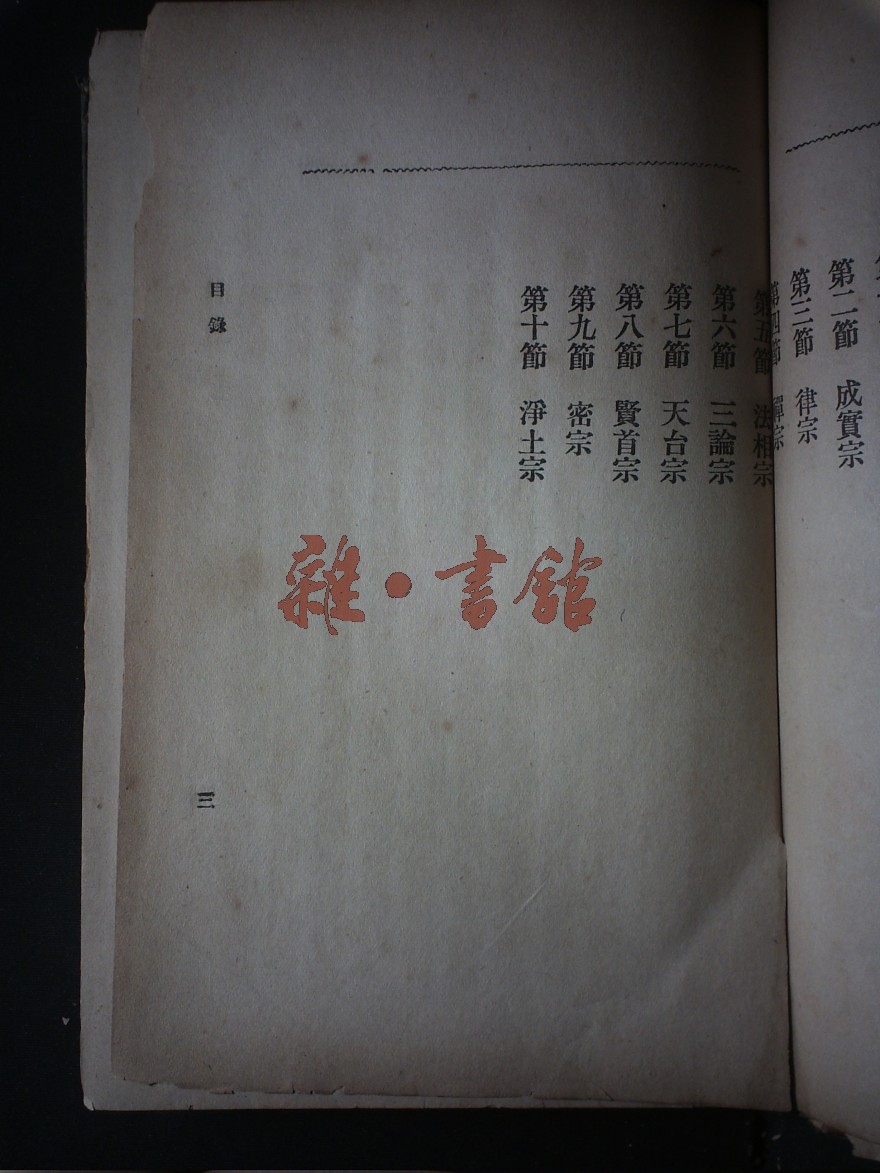 第二節 成實宗
第三節 律宗
第四節 禪宗
第五節 法相宗
第六節 三論宗
第七節 天台宗
第八節 賢首宗
第九節 密宗
第十節 淨土宗
目錄
三
雜·書館